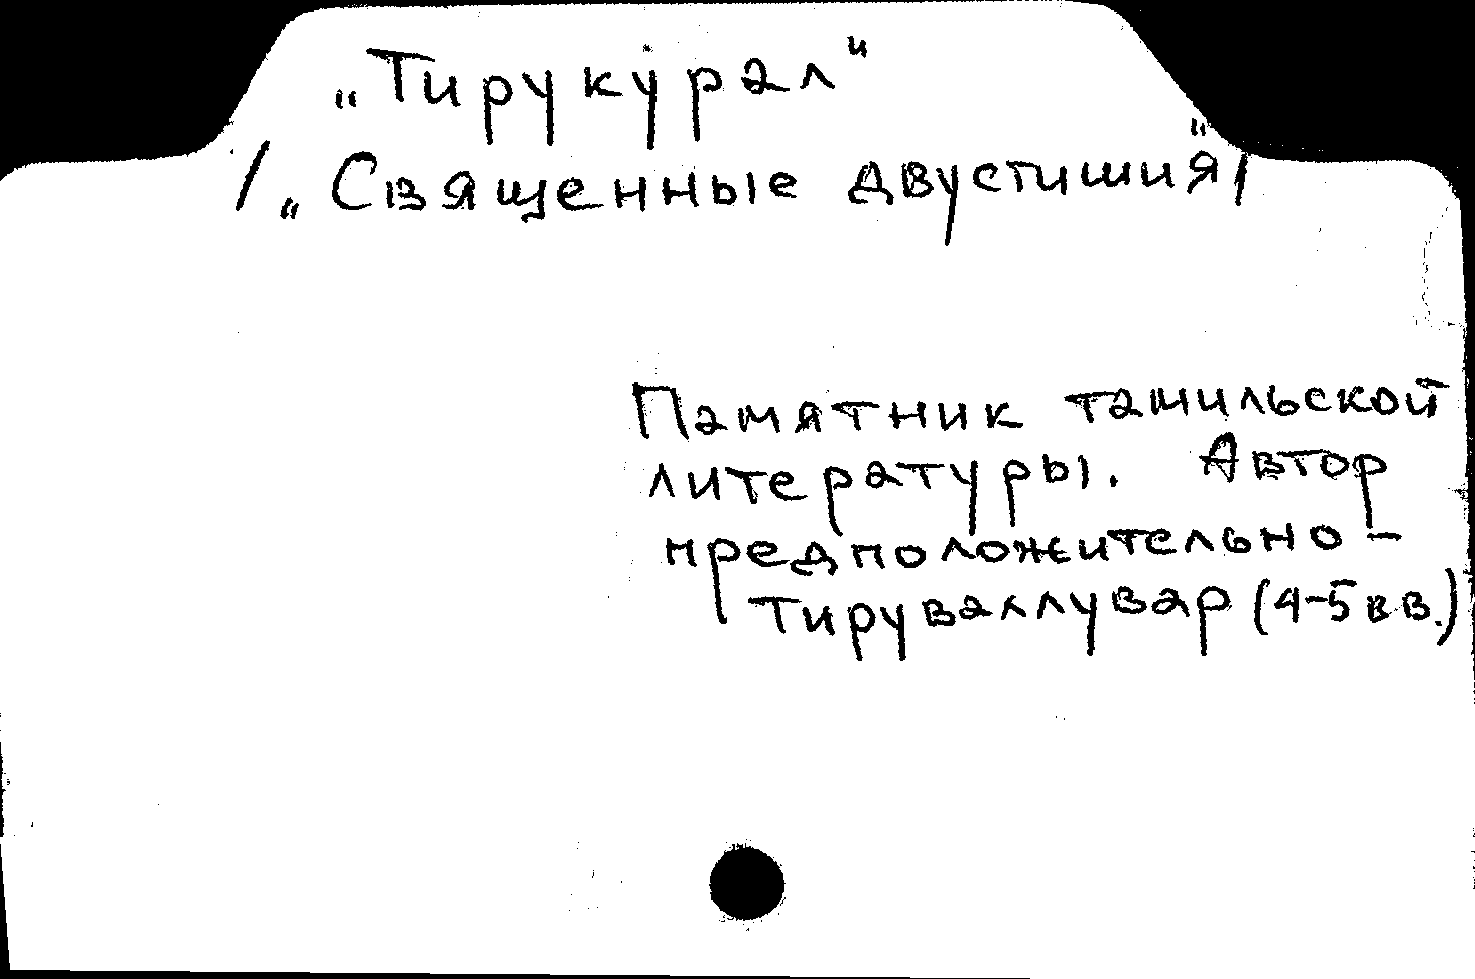 „Тирукурал"
/„Священные двустишия"/
Памятник тамильской
литературы. Автор
предположительно –
Тируваллувар (4-5 вв.)